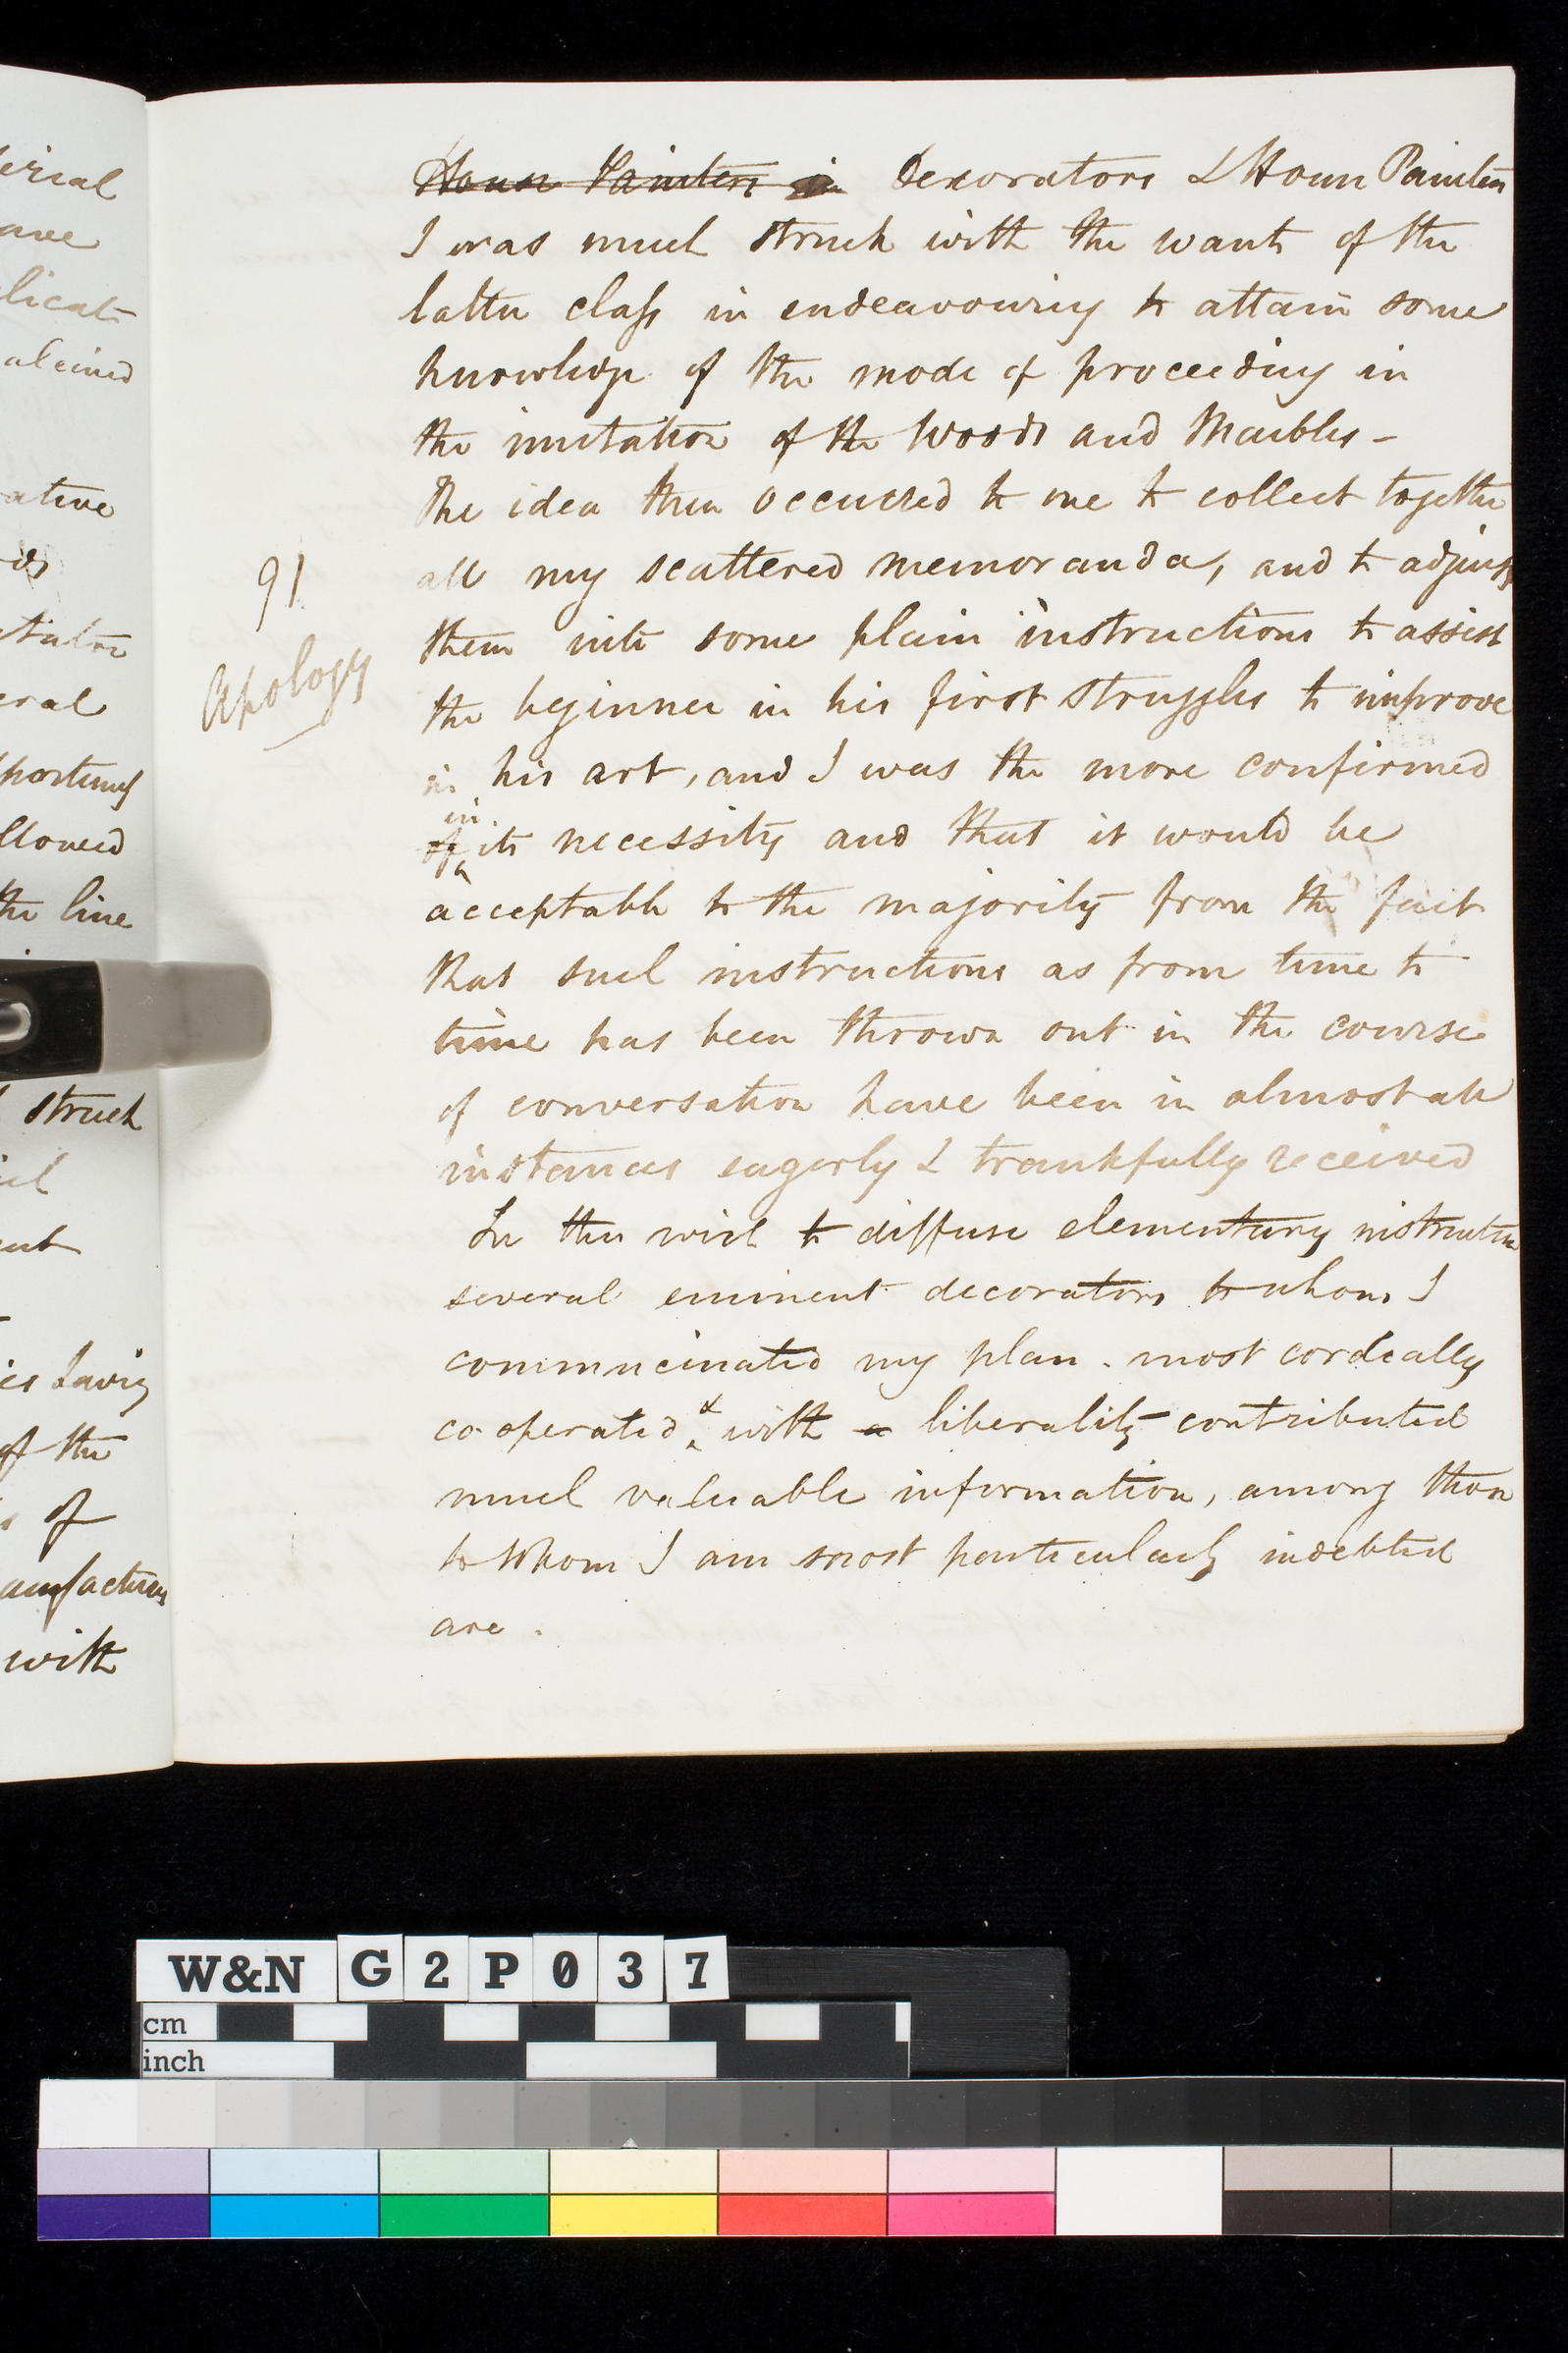 erial
ave
licate
alcined
ative
eral
llowed
the line
struck
of the
of
with
91
Apology
House Painters in Decorators & House Painters
I was much struck with the wants of the
latter class in endeavouring to attain some
knowledge of the mode of proceeding in
the imitation of the Woods and Marbles -
The idea then occurred to me to collect together
all my scattered memoranda, and to adjust
them into some plain instructions to assist
the beginner in his first struggles to improve
in his art, and I was the more confirmed
in
of its necessity and that it would be
acceptable to the majority from the fact
that such instructions as from time to
time has been thrown out in the course
of conversation have been in almost all
instances eagerly & trankfully received
In this wish to diffuse elementary instruction
several eminent decorators to whom I
commucinated my plan. most cordeally
co operated & with a liberality contributed
much valuable information, among those
to whom I am most particularly indebted
are.
W&N G2P037
cm
inch